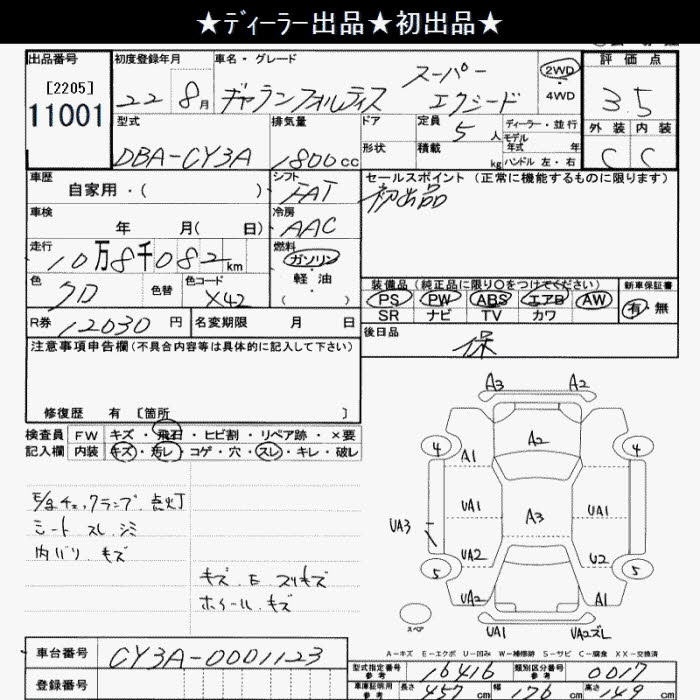 ★ディーラー出品★初出品★
出品番号
[2205]
11001
初度登録年月
22 8月
車名・グレード
ギャランフォルティス
スーパー
エクシード
2WD
4WD
評価点
3.5
外装 内装
C C
型式
DBA-CY3A
排気量
1800cc
ドア
形状
定員
5人
積載
kg
ディーラー・並行
モデル
年式 年
ハンドル 左・右
車歴
自家用・( )
シフト
FAT
セールスポイント (正常に機能するものに限ります)
初出品
車検
年 月( 日)
冷房
AAC
走行
10万8千082km
燃料
ガソリン
軽油
( )
色
クロ
色替
色コード
X42
装備品(純正品に限り○をつけてください)
PS PW ABS エアB AW
SR ナビ TV カワ
新車保証書
有・無
R券 12030円
名変期限 月 日
後日品
保
注意事項申告欄(不具合内容等は具体的に記入して下さい)
修復歴 有 [箇所 ]
検査員
記入欄
FW キズ・飛石・ヒビ割・リペア跡・×要
内装 キズ・汚レ・コゲ・穴・スレ・キレ・破レ
シート スレ シミ
内バリ キズ
キズ.E.スリキズ
ホイール.キズ
A3 A2
4 A2 4
A1
UA1 A3 UA1
UA3
UA2 U2
5 5
UA2 A1
スペア
UA1 UA2ズレ
A-キズ E-エクボ U-凹み W-補修跡 S-サビ C-腐食 XX-交換済
車台番号 CY3A-0001123
登録番号
型式指定番号
参考
16416
類別区分番号
参考
0017
車庫証明用
参考
長さ 457cm 幅 176cm 高さ 149cm